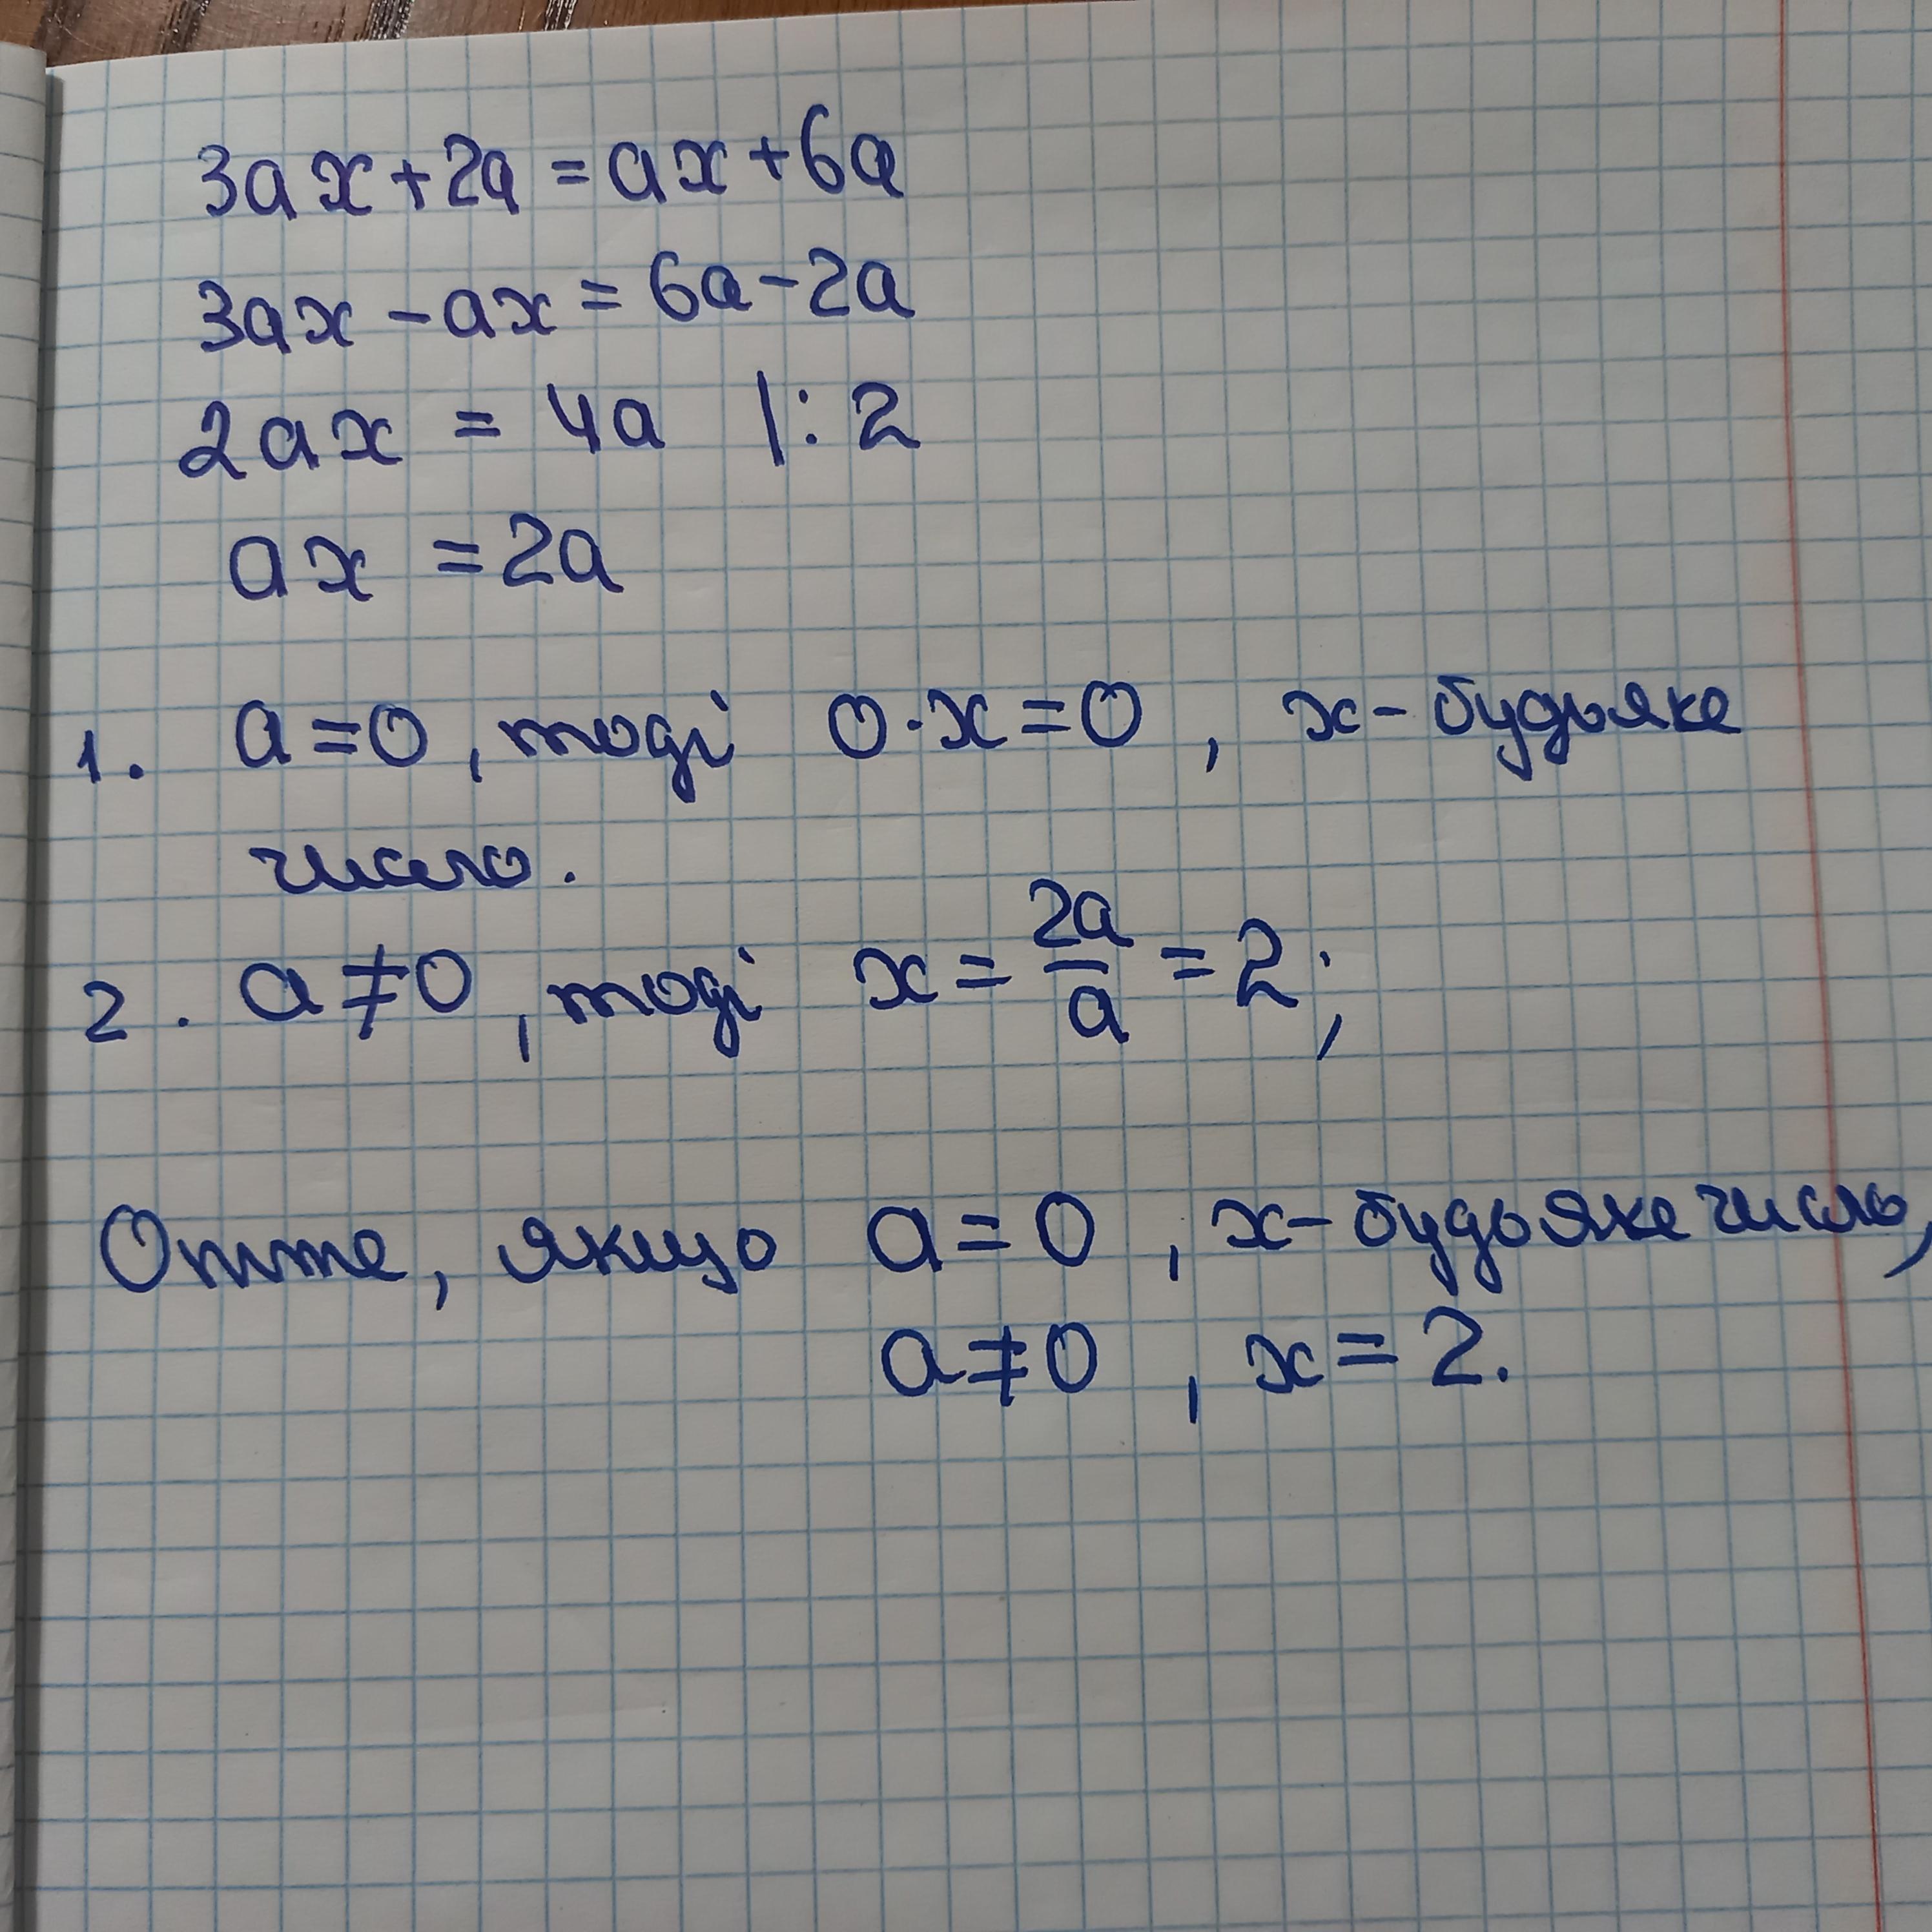 3ax+2a=ax+6a
3ax-ax=6a-2a
2ax=4a |:2
ax=2a
1. a=0, тоді 0·x=0, x-будьяке
число.
2. a≠0, тоді x=2a/a=2;
Отже, якщо a=0, x-будьяке число,
a≠0, x=2.